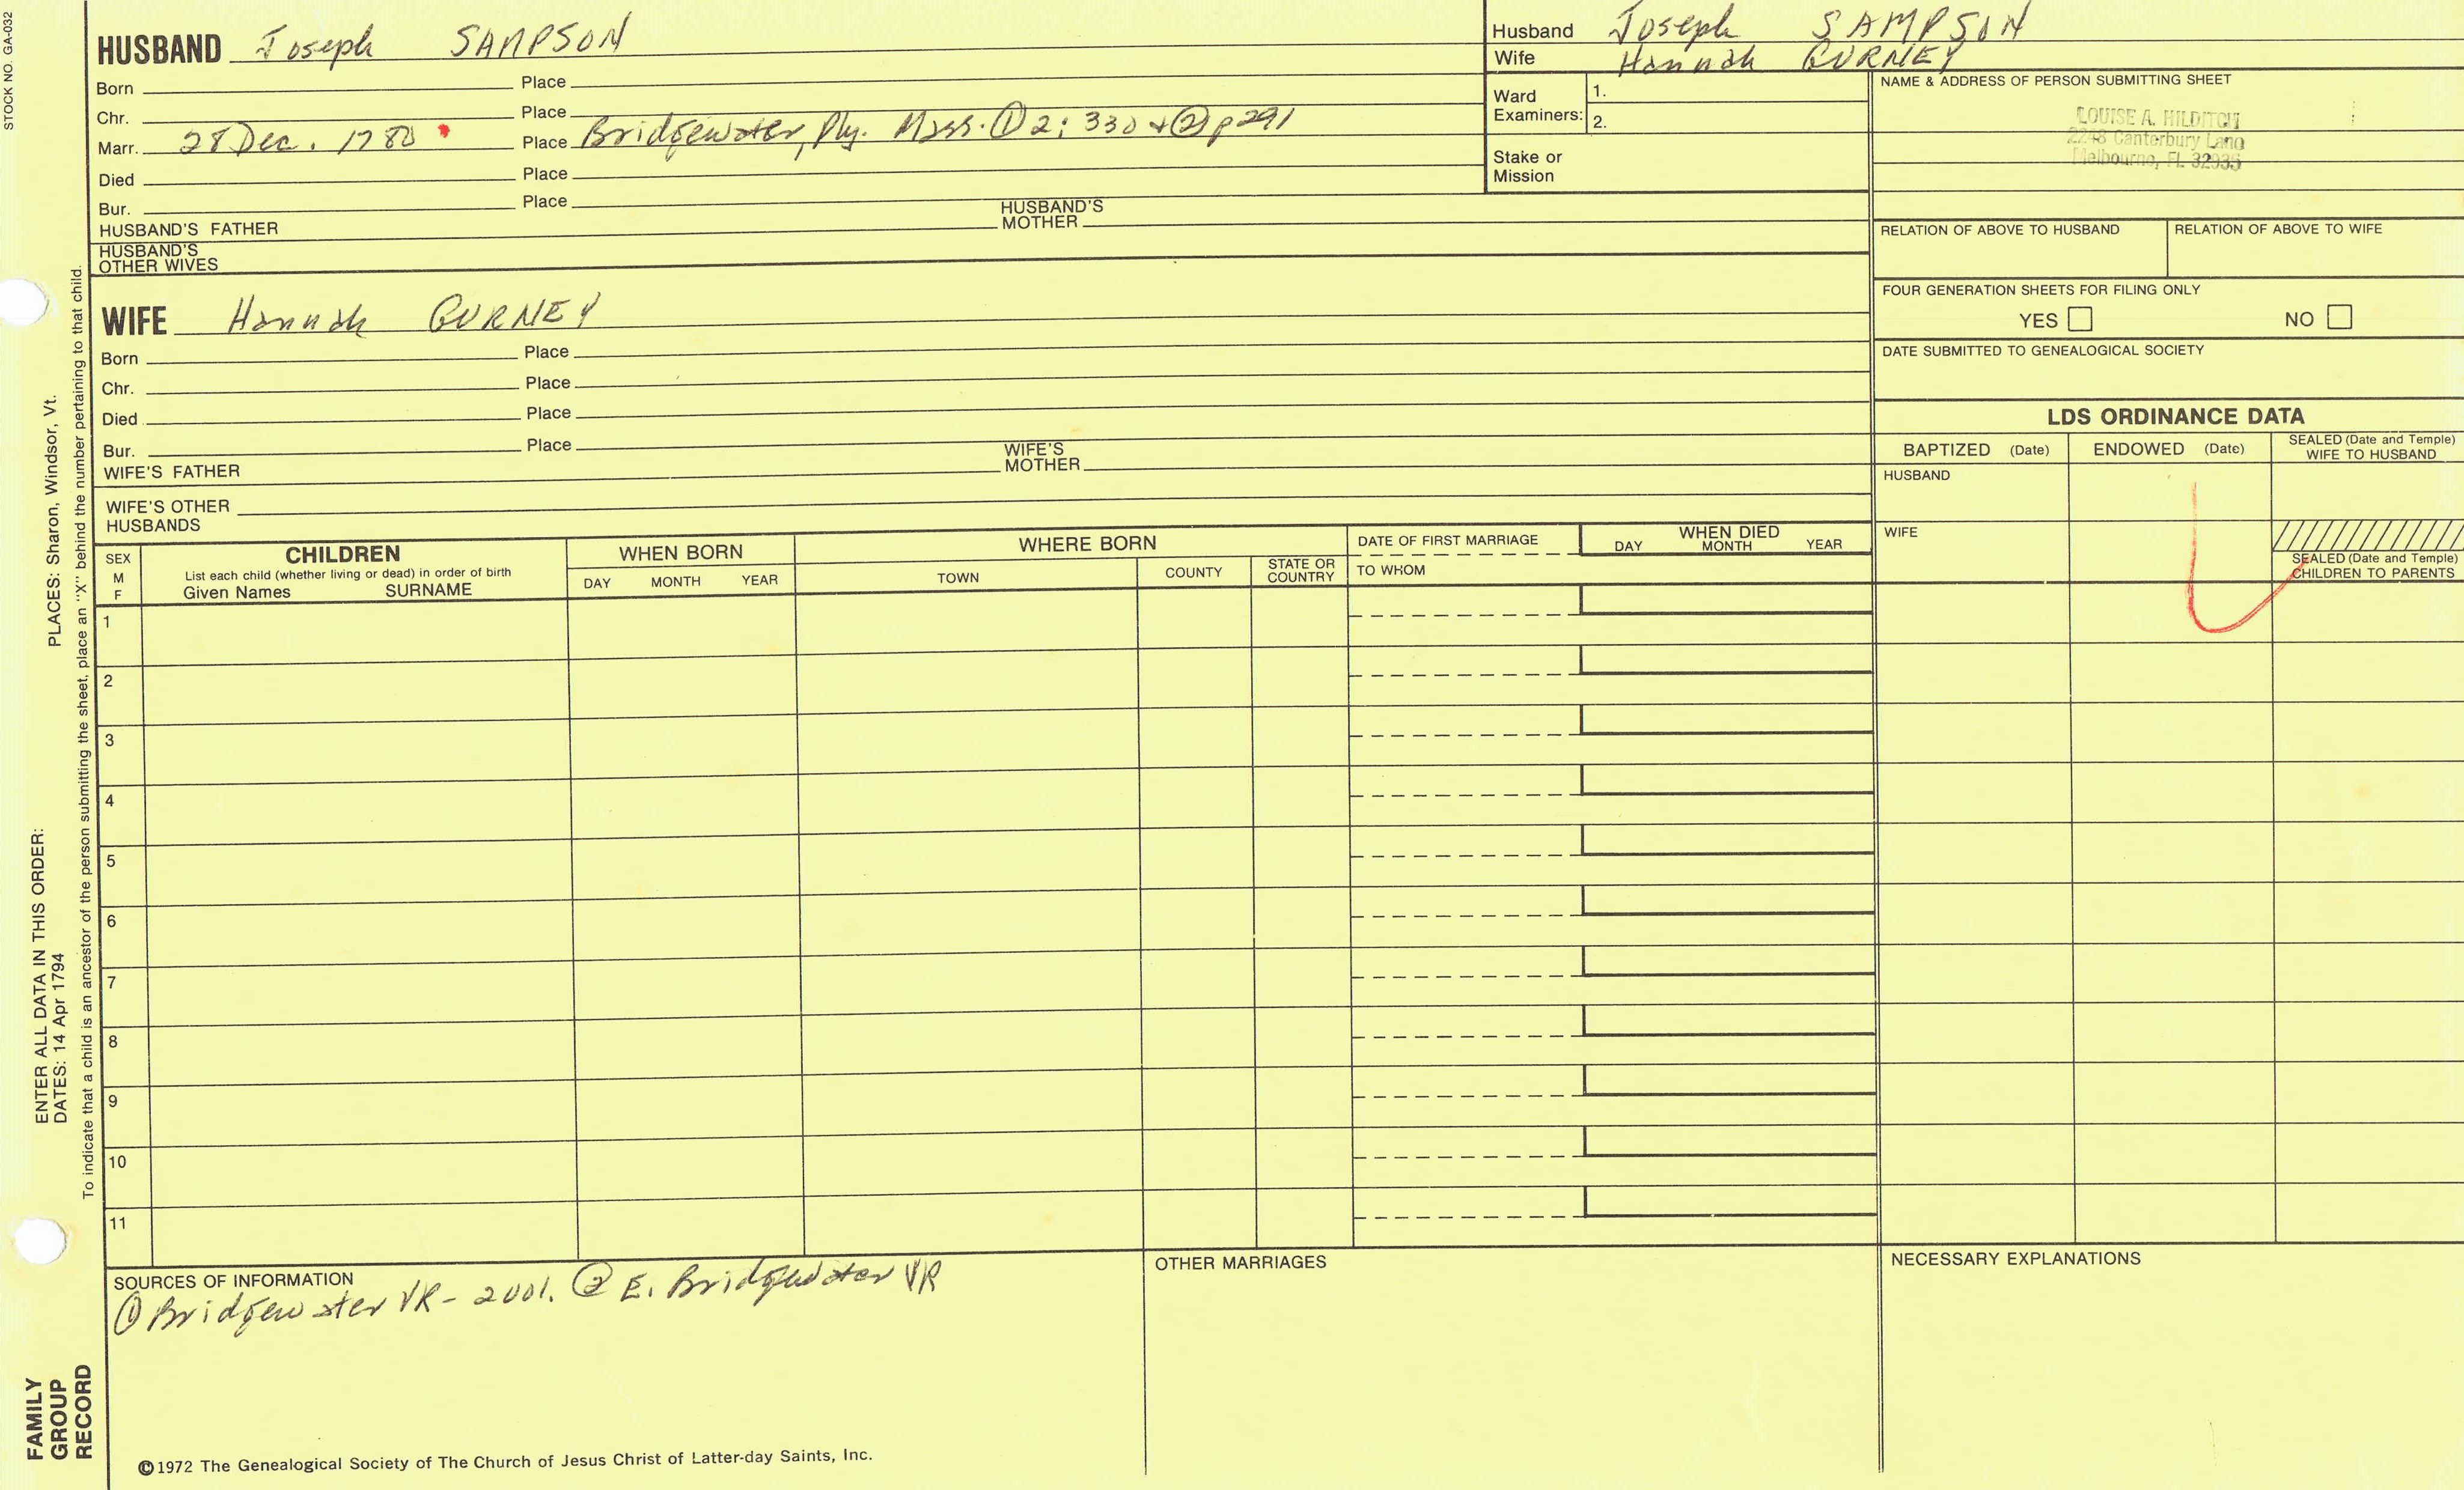 STOCK NO. GA-032
HUSBAND Joseph SAMPSON
Born Place
Chr. Place
Marr. 28 Dec. 1780 Place Bridgewater, Ply. Mass. ① 2: 330 + ② p 291
Died Place
Bur. Place
HUSBAND'S FATHER HUSBAND'S MOTHER
HUSBAND'S
OTHER WIVES
Husband Joseph SAMPSON
Wife Hannah GURNEY
Ward
Examiners: 1.
2.
Stake or
Mission
NAME & ADDRESS OF PERSON SUBMITTING SHEET
LOUISE A. HILDITCH
2248 Canterbury Lane
Melbourne, FL 32935
RELATION OF ABOVE TO HUSBAND RELATION OF ABOVE TO WIFE
FOUR GENERATION SHEETS FOR FILING ONLY
YES NO
DATE SUBMITTED TO GENEALOGICAL SOCIETY
WIFE Hannah GURNEY
Born Place
Chr. Place
Died Place
Bur. Place
WIFE'S FATHER WIFE'S MOTHER
WIFE'S OTHER
HUSBANDS
LDS ORDINANCE DATA
BAPTIZED (Date) ENDOWED (Date) SEALED (Date and Temple)
WIFE TO HUSBAND
HUSBAND
WIFE
SEALED (Date and Temple)
CHILDREN TO PARENTS
SEX
M
F
CHILDREN
List each child (whether living or dead) in order of birth
Given Names SURNAME
WHEN BORN
DAY MONTH YEAR
WHERE BORN
TOWN COUNTY STATE OR
COUNTRY
DATE OF FIRST MARRIAGE
TO WHOM
WHEN DIED
DAY MONTH YEAR
1
2
3
4
5
6
7
8
9
10
11
SOURCES OF INFORMATION
① Bridgewater VR - 2 vol. ② E. Bridgewater VR
OTHER MARRIAGES
NECESSARY EXPLANATIONS
©1972 The Genealogical Society of The Church of Jesus Christ of Latter-day Saints, Inc.
ENTER ALL DATA IN THIS ORDER:
DATES: 14 Apr 1794
PLACES: Sharon, Windsor, Vt.
To indicate that a child is an ancestor of the person submitting the sheet, place an "X" behind the number pertaining to that child.
FAMILY
GROUP
RECORD